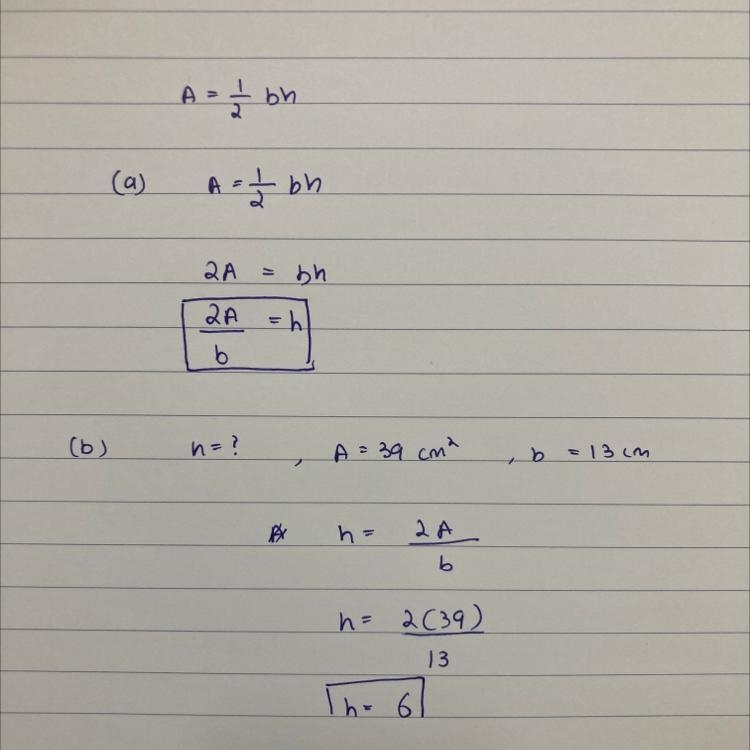 A = 1/2 bh
(a) A = 1/2 bh
2A = bh
2A/b = h
(b) h = ? , A = 39 cm² , b = 13 cm
h = 2A/b
h = 2(39)/13
h = 6